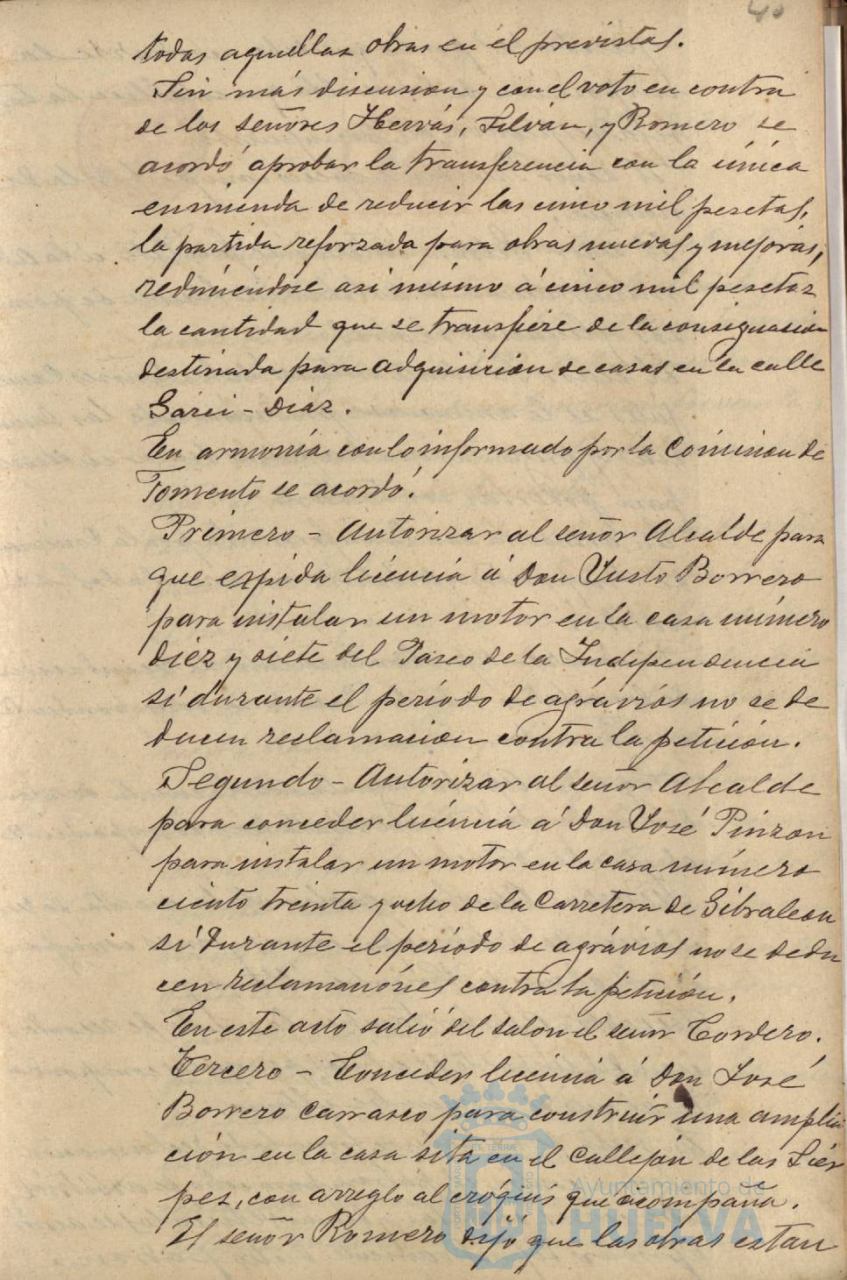 40
todas aquellas obras en él previstas.
Sin más discusion y con el voto en contra
de los señores Hervás, Silván, y Romero se
acordó aprobar la transferencia con la única
enmienda de reducir las cinco mil pesetas,
la partida reforzada para obras nuevas y mejoras,
reduciéndose asi mismo á cinco mil pesetas
la cantidad que se transfiere de la consignacion
destinada para adquisicion de casas en la calle
Garci-Diaz.
En armonía con lo informado por la Comision de
Fomento se acordó.
Primero - Autorizar al señor Alcalde para
que expida licencia á Don Justo Borrero
para instalar un motor en la casa número
diez y siete del Paseo de la Independencia
si durante el período de agravios no se de
ducen reclamacion contra la petición.
Segundo - Autorizar al señor Alcalde
para conceder licéncia á Don José Pinzon
para instalar un motor en la casa número
ciento treinta y ocho de la Carretera de Gibraleon
si durante el período de agrávios no se dedu
cen reclamaciónes contra la petición.
En este acto salió del salon el señor Cordero.
Tercero - Conceder licencia á Don José
Borrero Carrasco para construir una amplia
ción en la casa sita en el callejón de las Sier
pes, con arreglo al cróquis que acompaña.
El señor Romero dijo que las obras estan
Ayuntamiento de
HUELVA